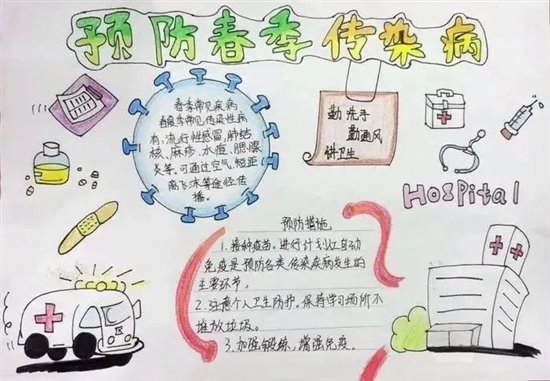 预防春季传染病
春季常见疾病
春季常见传染性病
有:流行性感冒、肺结
核、麻疹、水痘、腮腺
炎等。可通过空气、短距
离飞沫等途径传
播。
勤洗手
勤通风
讲卫生
Hospital
预防措施
1.接种疫苗。进行计划
免疫是预防各类传染疾病发生的
主要环节。
2.注意个人卫生防护。保持学习场所不
堆放垃圾。
3.加强锻炼,增强免疫。